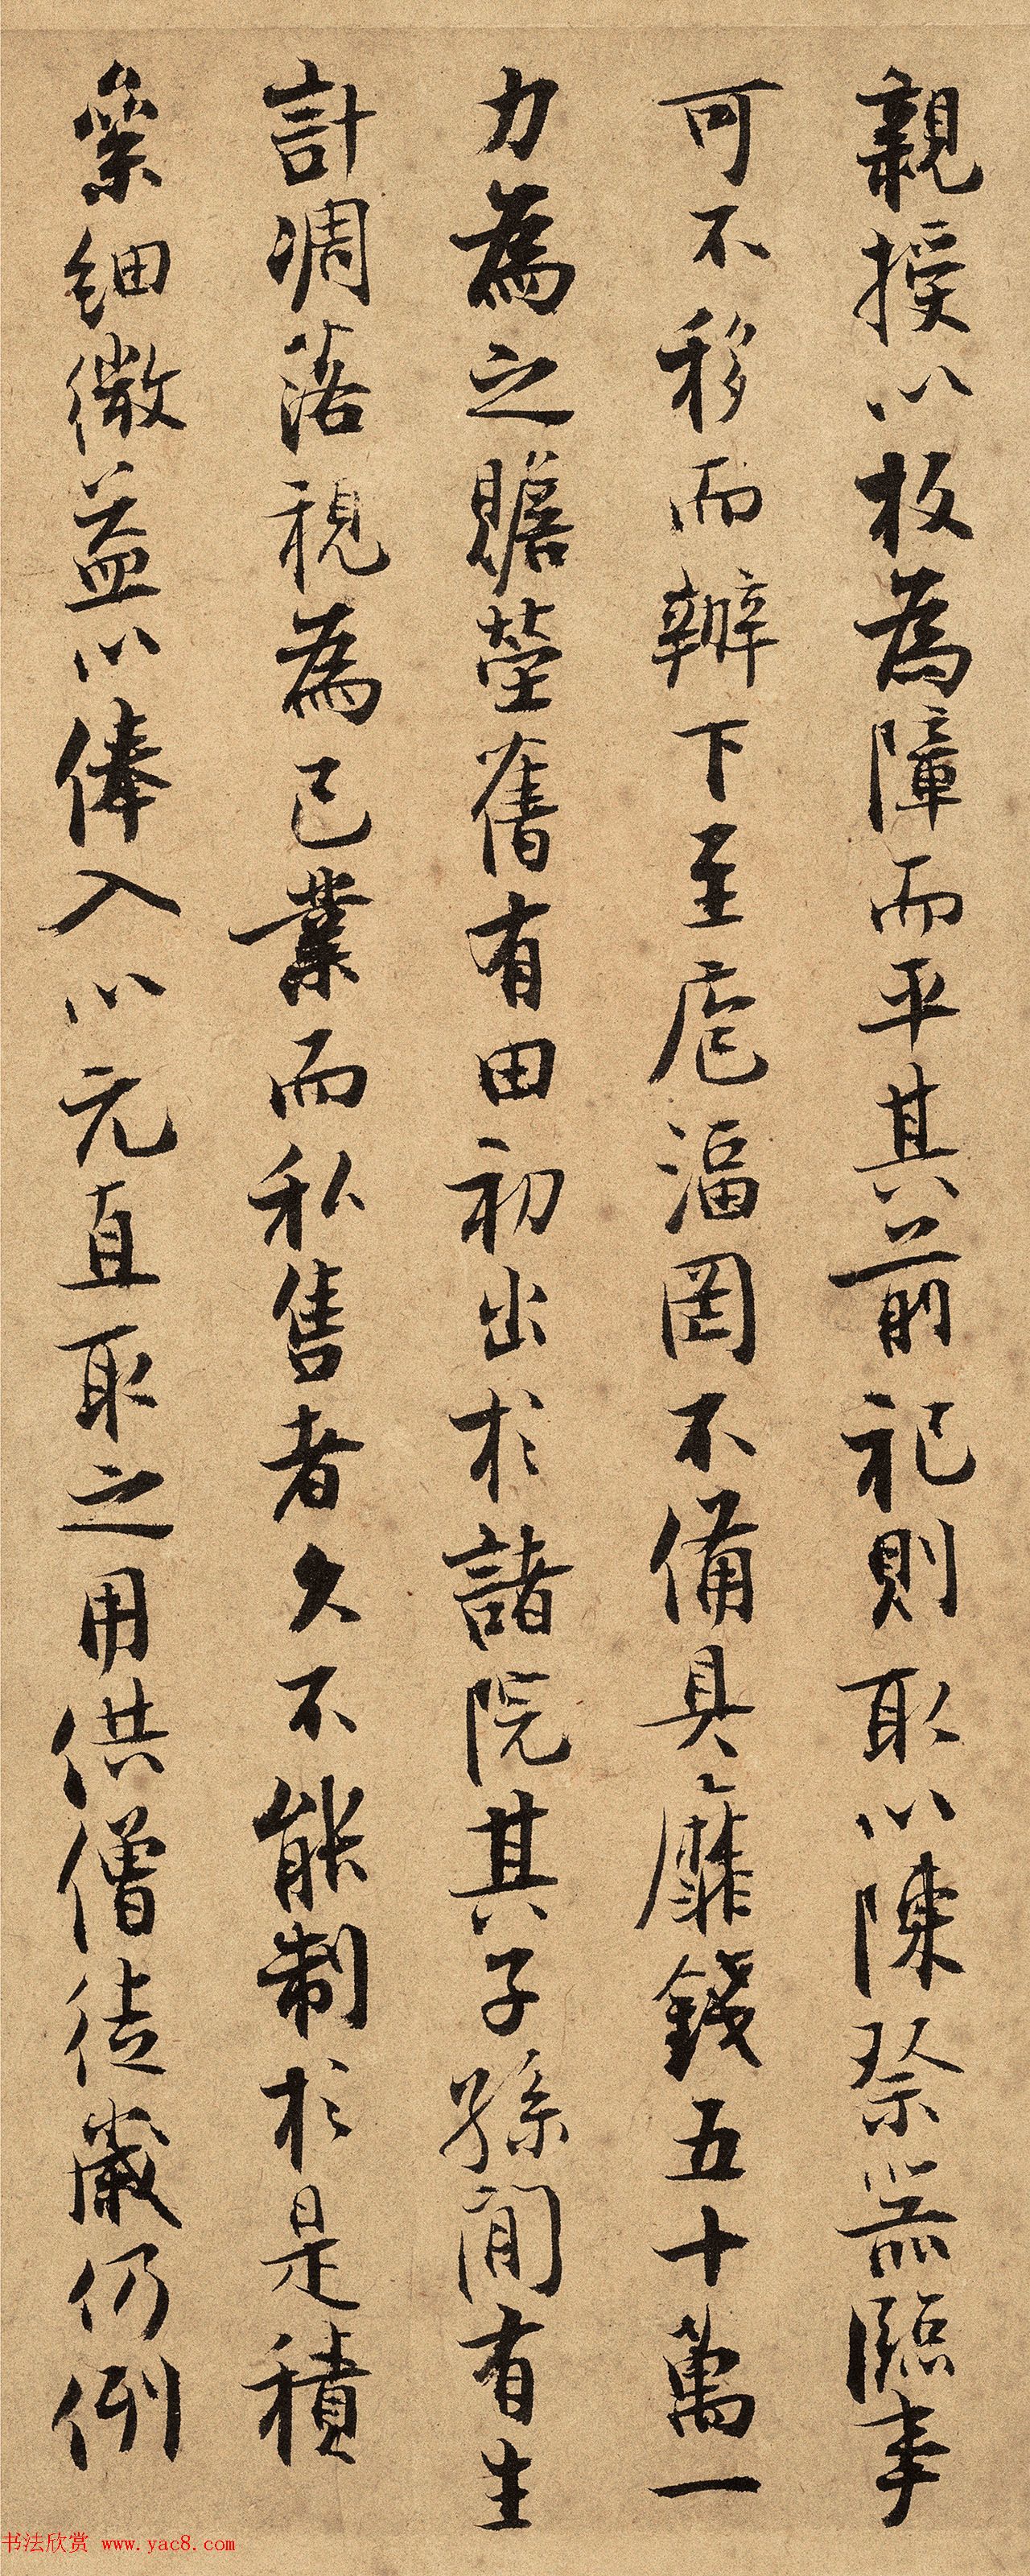 親授以板為障而平其前祀則取以陳祭器臨事
可不移而辦下至庖湢罔不備具靡錢五十萬一
力為之贍塋舊有田初出於諸院其子孫間有生
計凋落視為己業而私售者久不能制於是積
絫細微益以俸入以元直取之用供僧徒歲仍例
书法欣赏 www.yac8.com